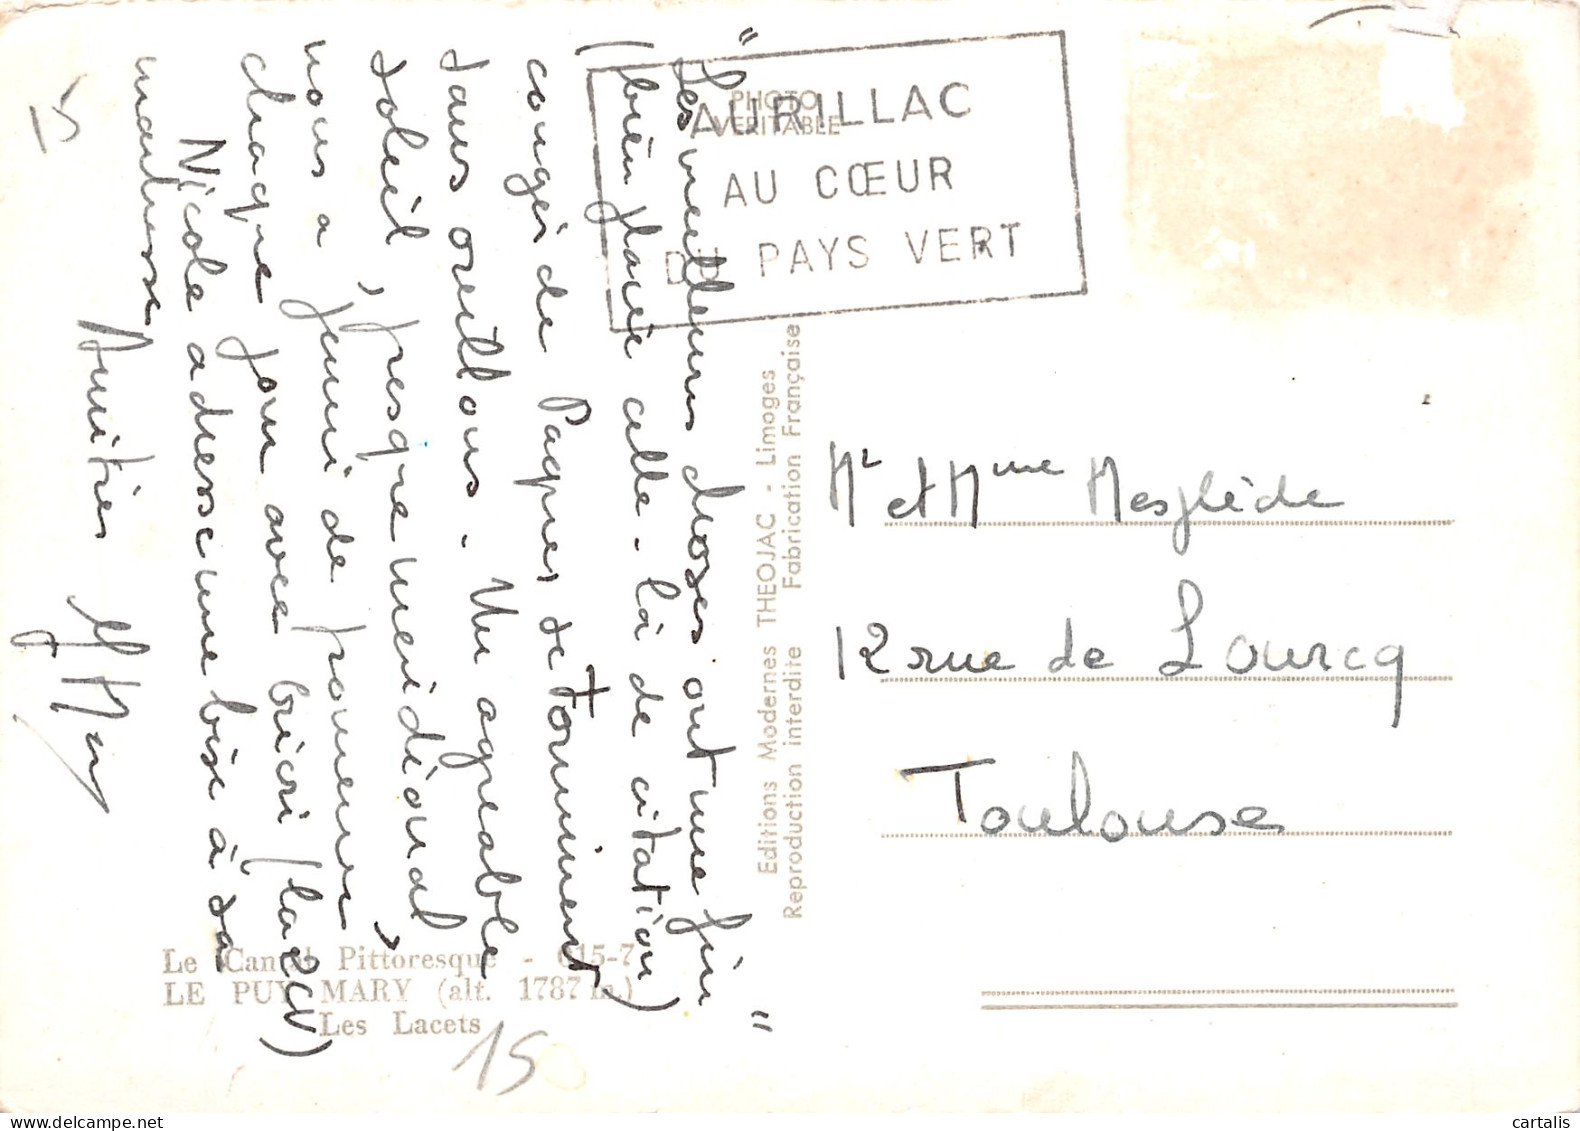 " Les meilleurs choses ont une fin "
(bien placée celle-là de citation)
congés de Paques se terminent
dans oreillons. Un agréable
soleil, presque méridional,
nous a permi de promener
chaque jour avec bicori (la 2CV)
Nicole adresse une bise à sa
maitresse
Amitiés
15
PHOTO
VERITABLE
AURILLAC
AU CŒUR
DU PAYS VERT
Editions Modernes THEOJAC - Limoges
Reproduction interdite Fabrication Française
Mr et Mme Mesplède
12 rue de Lourcq
Toulouse
Le Cantal Pittoresque - 615-7
LE PUY MARY (alt. 1787 m.)
Les Lacets
15
cartalis